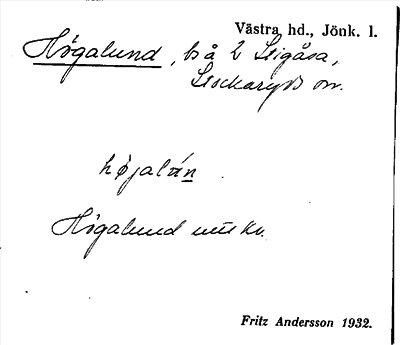 Västra hd., Jönk. l.
Högalund, bs å 2 Stigåsa,
Stockaryds sn.
högalán
Högalund uttkv.
Fritz Andersson 1932.